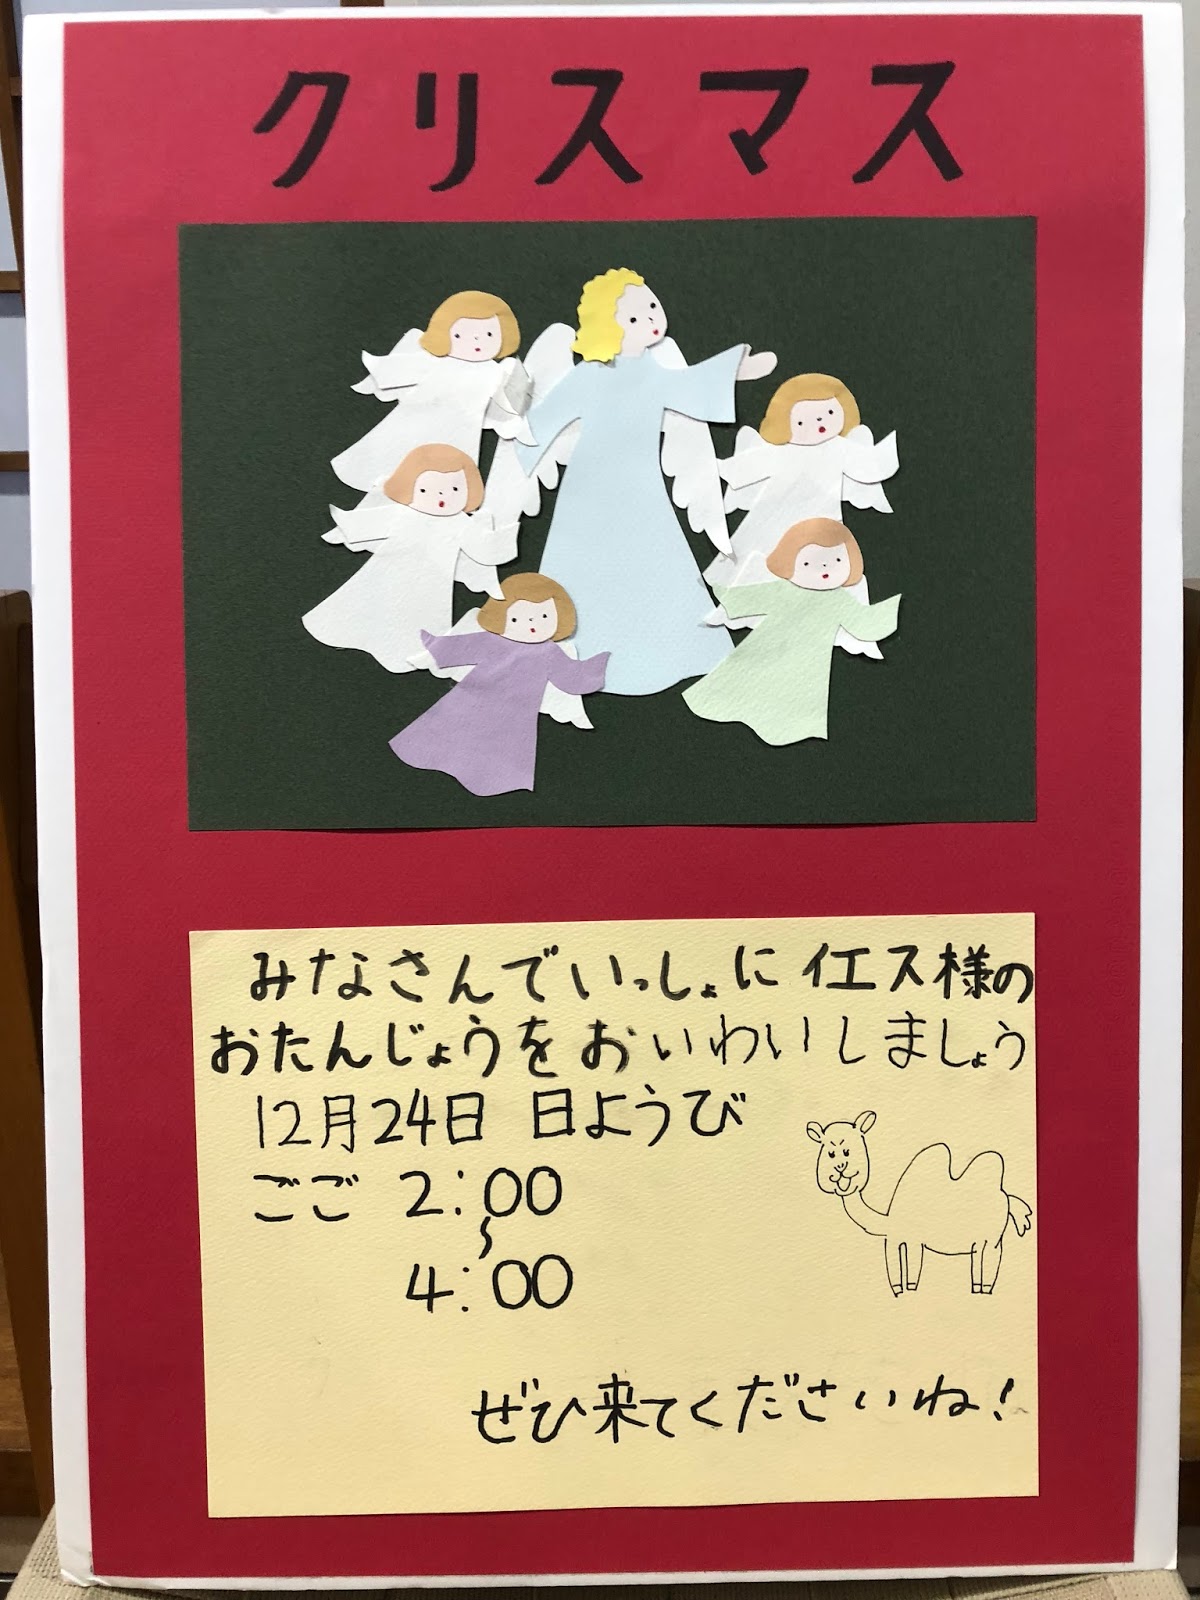 クリスマス
みなさんでいっしょにイエス様の
おたんじょうをおいわいしましょう
12月24日 日ようび
ごご 2:00
〜
4:00
ぜひ来てくださいね!